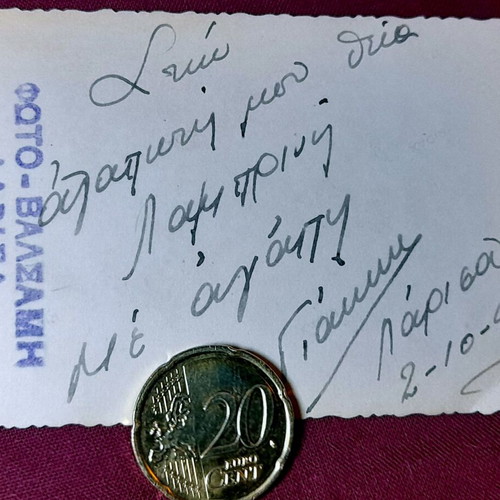 Στήν
ἀγαπητή μου θεία
Λαμπρινή
Μέ ἀγάπη
Γιάννης
Λάρισα
2-10-
ΦΩΤΟ-ΒΑΛΣΑΜΗ
20
EURO
CENT